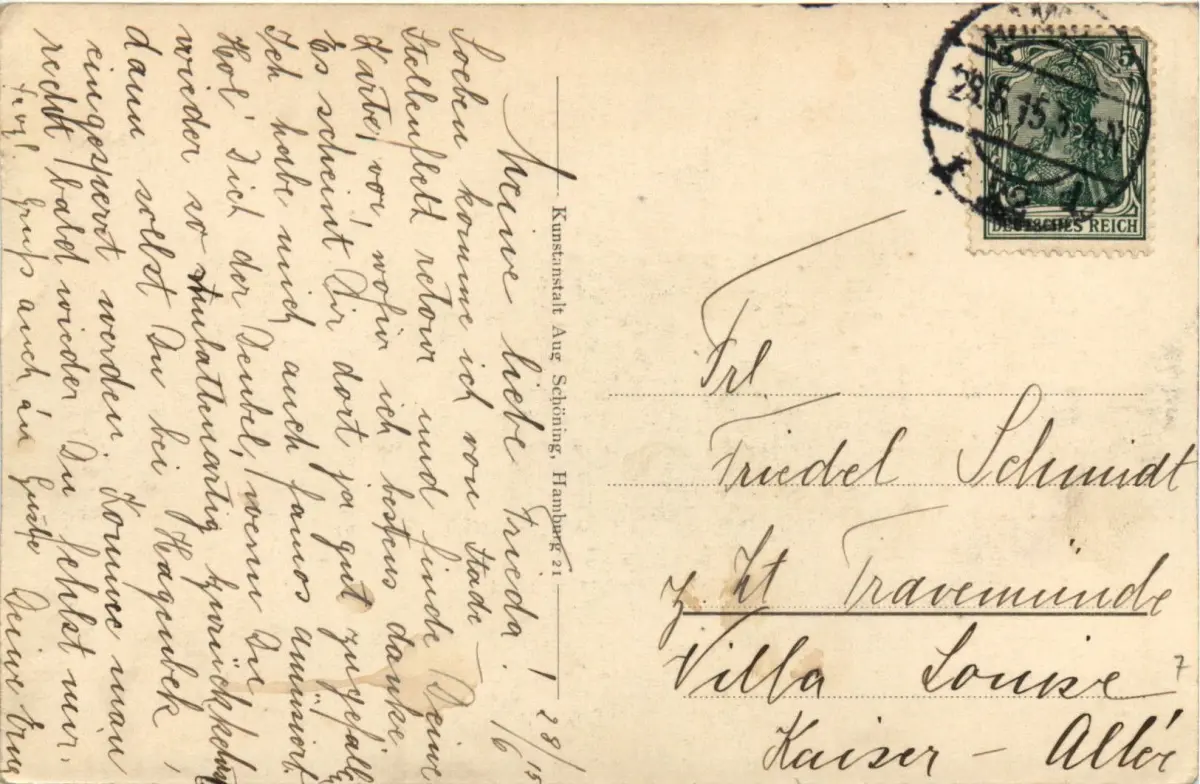 Meine liebe Frieda! 28/6 15
Soeben komme ich von Stade –
Stellenflett retour und finde Deine
Karte, vor, wofür ich bestens danke.
Es scheint Dir dort ja gut zu gefallen
Ich habe mich auch famos amüsiert.
Hol' Dich der Deubel, wenn Du
wieder so mulattenartig zurückkehrst
dann sollst Du bei Hagenbek
eingesperrt werden. Komme man
recht bald wieder Du fehlst mir.
Gruß auch an Guste Deine Erna
Kunstanstalt Aug Schöning, Hamburg 21
5 5
DEUTSCHES REICH
28.6.15.3-4N
Frl
Friedel Schmidt
z. Zt Travemünde
Villa Louise
Kaiser – Allée
7